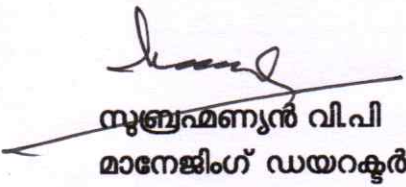 സുബ്രഹ്മണ്യൻ വി.പി
മാനേജിംഗ് ഡയറക്ടർ